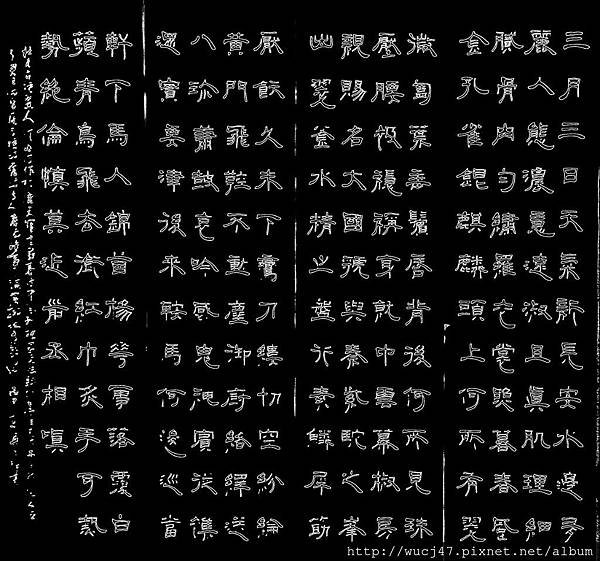 三月三日天氣新長安水邊多
麗人態濃意遠淑且真肌理細
膩骨肉勻繡羅衣裳照暮春蹙
金孔雀銀麒麟頭上何所有翠
微匎葉垂鬢唇背後何所見珠
壓腰衱穩稱身就中雲幕椒房
親賜名大國虢與秦紫駝之峯
出翠釜水精之盤行素鱗犀筯
厭飫久未下鸞刀縷切空紛綸
黃門飛鞚不動塵御府絡繹送
八珍簫鼓哀吟感鬼神賓從雜
遝實要津後來鞍馬何逡巡當
軒下馬人錦茵楊花雪落覆白
蘋青鳥飛去銜紅巾炙手可熱
勢絕倫慎莫近前丞相嗔
http://wucj47.pixnet.net/album